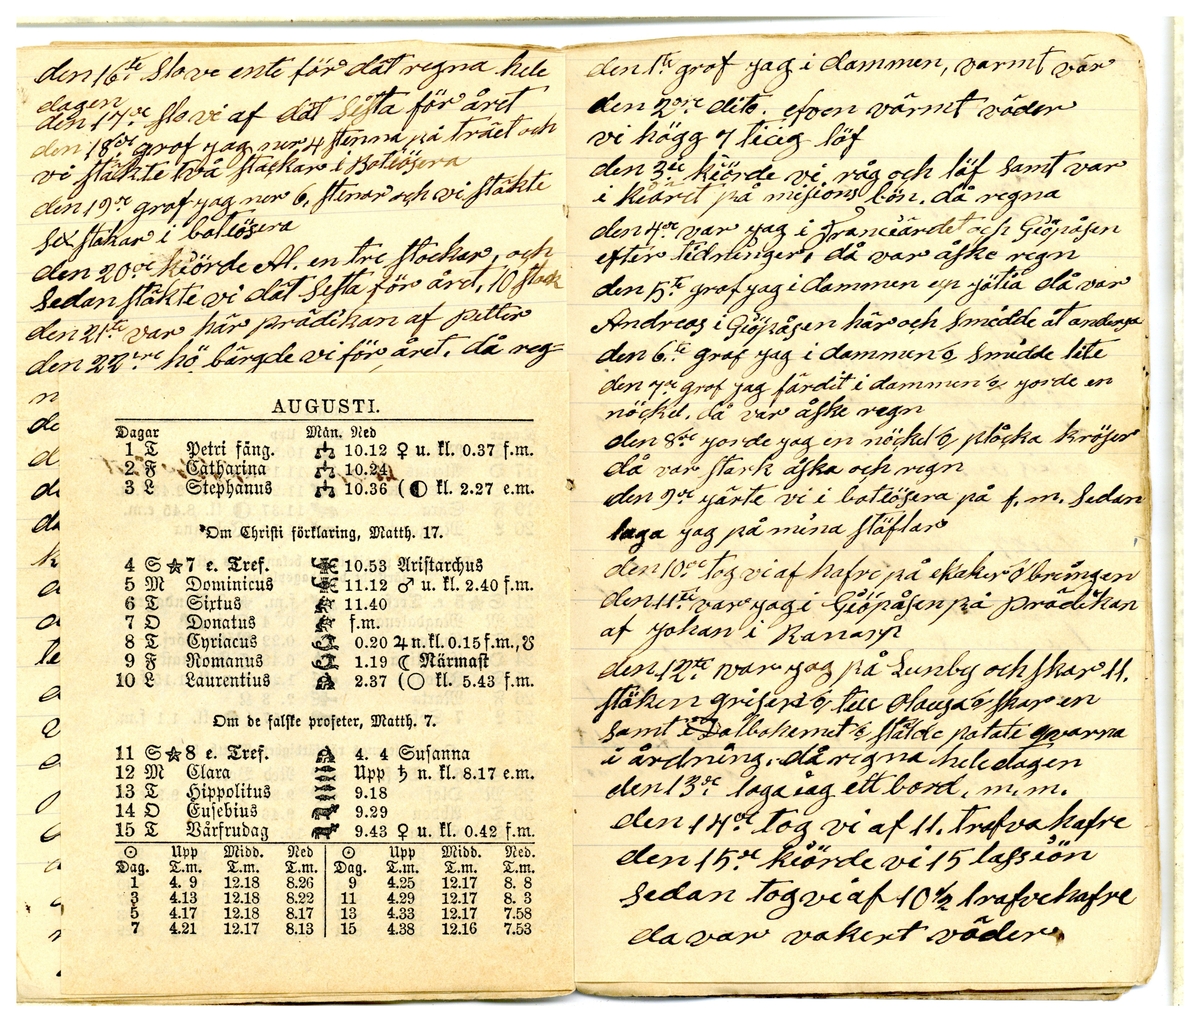 den 16te slo vi ente för dät regna hele
dagen
den 17de slo vi af dät sista för året
den 18de grof jag ner 4 stenna på träet och
vi stäkte två stackar i Botiösera
den 19de grof jag ner 6, stenar och vi stäkte
sex stakar i botiösera
den 20de kiörde Al. en tre stockar, och
sedan stäkte vi dät sista för året, 10 stack
den 21ste var här prädikan af petter
den 22dre hö bärgde vi för året. då reg=
AUGUSTI.
Dagar Mån. Ned
1 T Petri fäng. 10.12 ♀ u. kl. 0.37 f.m.
2 F Catharina 10.24
3 L Stephanus 10.36 (◐ kl. 2.27 e.m.
Om Christi förklaring, Matth. 17.
4 S 7 e. Tref. 10.53 Aristarchus
5 M Dominicus 11.12 ♂ u. kl. 2.40 f.m.
6 T Sixtus 11.40
7 O Donatus f.m.
8 T Cyriacus 0.20 ♃ n. kl. 0.15 f.m., ☋
9 F Romanus 1.19 ☾ Närmast
10 L Laurentius 2.37 (○ kl. 5.43 f.m.
Om de falske profeter, Matth. 7.
11 S 8 e. Tref. 4. 4 Susanna
12 M Clara Upp ♄ n. kl. 8.17 e.m.
13 T Hippolitus 9.18
14 O Eusebius 9.29
15 T Vårfrudag 9.43 ♀ u. kl. 0.42 f.m.
☉ Upp Midd. Ned ☉ Upp Midd. Ned.
Dag. T.m. T.m. T.m. Dag. T.m. T.m. T.m.
1 4. 9 12.18 8.26 9 4.25 12.17 8. 8
3 4.13 12.18 8.22 11 4.29 12.17 8. 3
5 4.17 12.18 8.17 13 4.33 12.17 7.58
7 4.21 12.17 8.13 15 4.38 12.16 7.53
den 1ste grof jag i dammen, varmt vär
den 2dre dito. efven värmt väder
vi högg 7 löf
den 3die kiörde vi, råg och löf samt var
i kiäret på misions bön. då regna
den 4de var jag i och Giöpåsen
efter tidninger, då var åske regn
den 5te graf jag i dammen en då var
Andreas i Giöpåsen här och smidde åt
den 6te graf jag i dammen & smidde lite
den 7de grof jag färdit i dammen & jorde en
nöckel. då var åske regn
den 8de jorde jag en nöckel & plocka kröser
då var stark åska och regn
den 9de gärte vi i botiösera på f. m. Sedan
laga jag på mina stöflar
den 10de tog vi af hafre på ekaker & bremgen
den 11te var jag i Giöpåsen på prädikan
af Johan i Ranarp
den 12te var jag på Lunby och skar 11.
stäken griser & till & skar en
samt i Dalbokernet & stälde patate qvarna
i årdning. då regna hele dagen
den 13de laga jag ett bord. m. m.
den 14de tog vi af 11. trafva hafre
den 15de kiörde vi 15 lass iön
Sedan tog vi af 10 1/2 trafve hafre
da var vakert väder